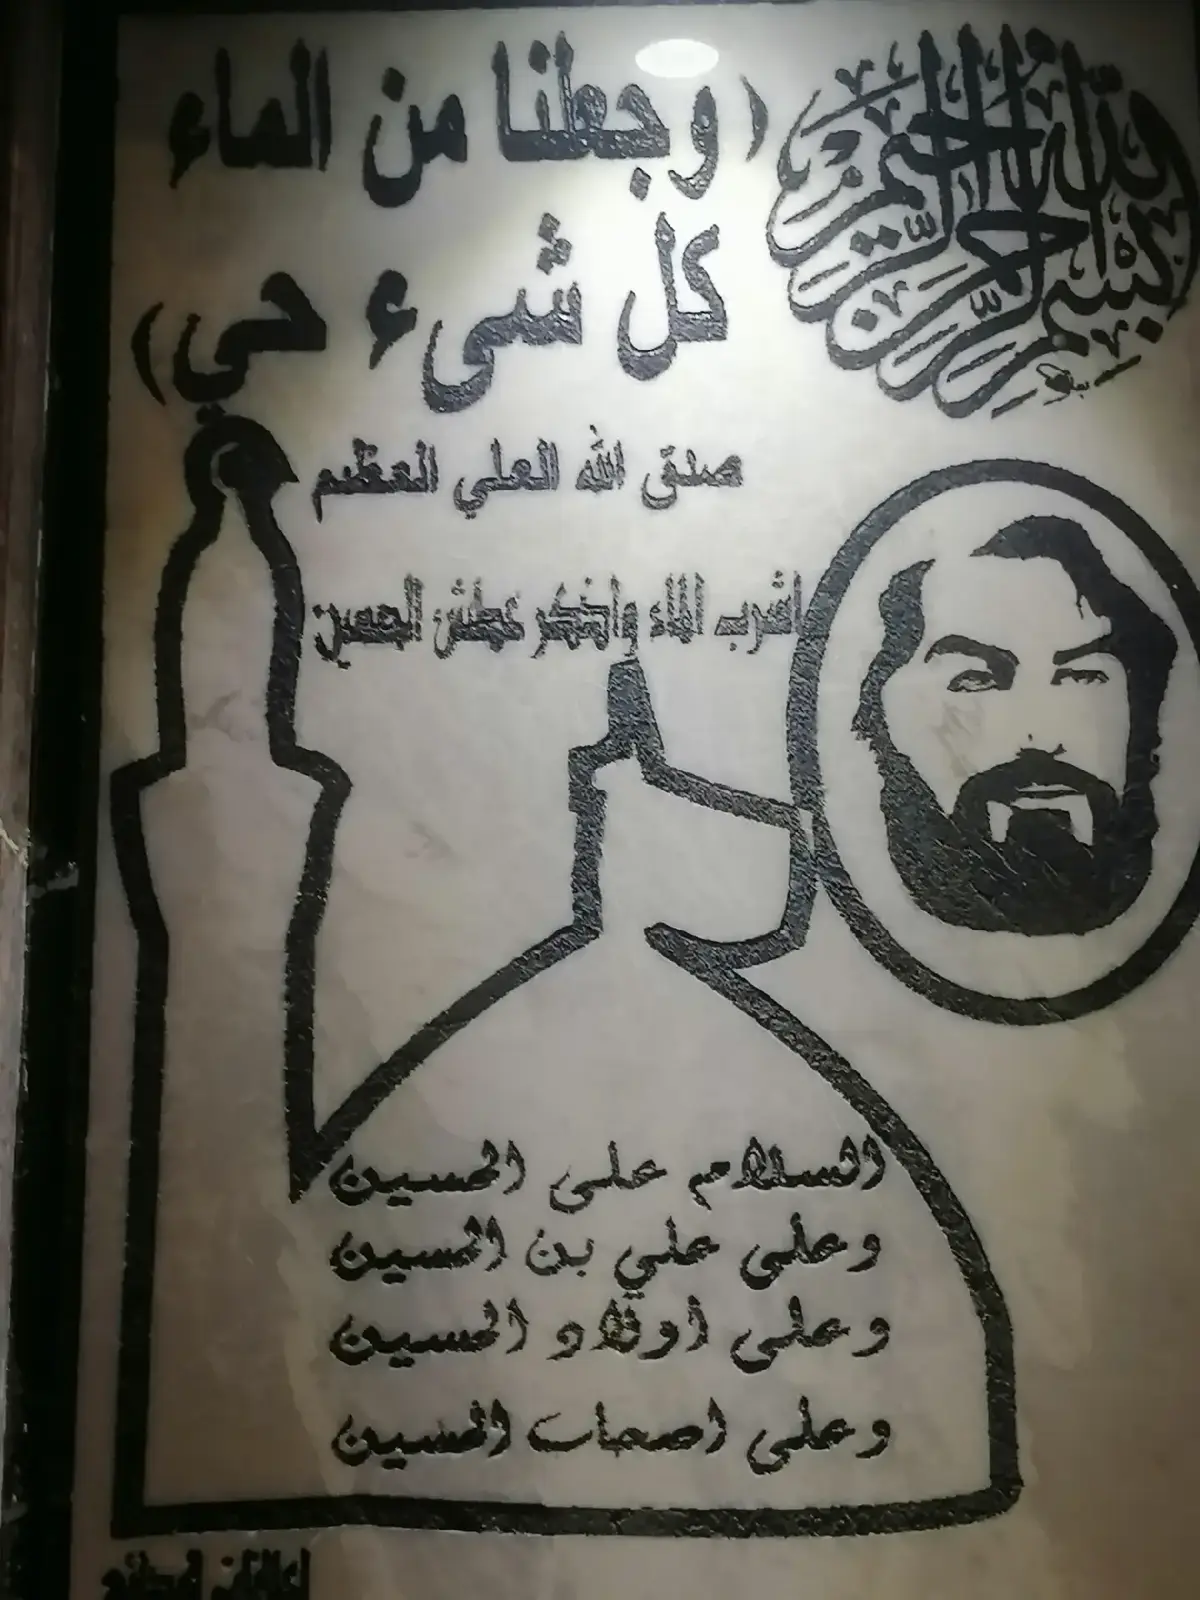 بسم الله الرحمن الرحيم
(وجعلنا من الماء
كل شىء حي)
صدق الله العلي العظيم
اشرب الماء واذكر عطش الحسين
السلام على الحسين
وعلى علي بن الحسين
وعلى اولاد الحسين
وعلى اصحاب الحسين